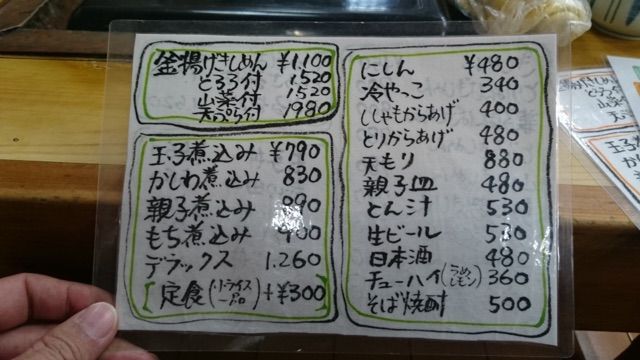 釜揚げきしめん ¥1,100
とろろ付 1,520
山菜付 1,520
天ぷら付 1980
玉子煮込み ¥790
かしわ煮込み 830
親子煮込み
もち煮込み
デラックス 1.260
定食 +¥300
にしん ¥480
冷やっこ 340
ししゃもからあげ 400
とりからあげ 480
天もり 880
親子皿 480
とん汁 530
生ビール 530
日本酒 480
チューハイ(うめ レモン) 360
そば焼酎 500